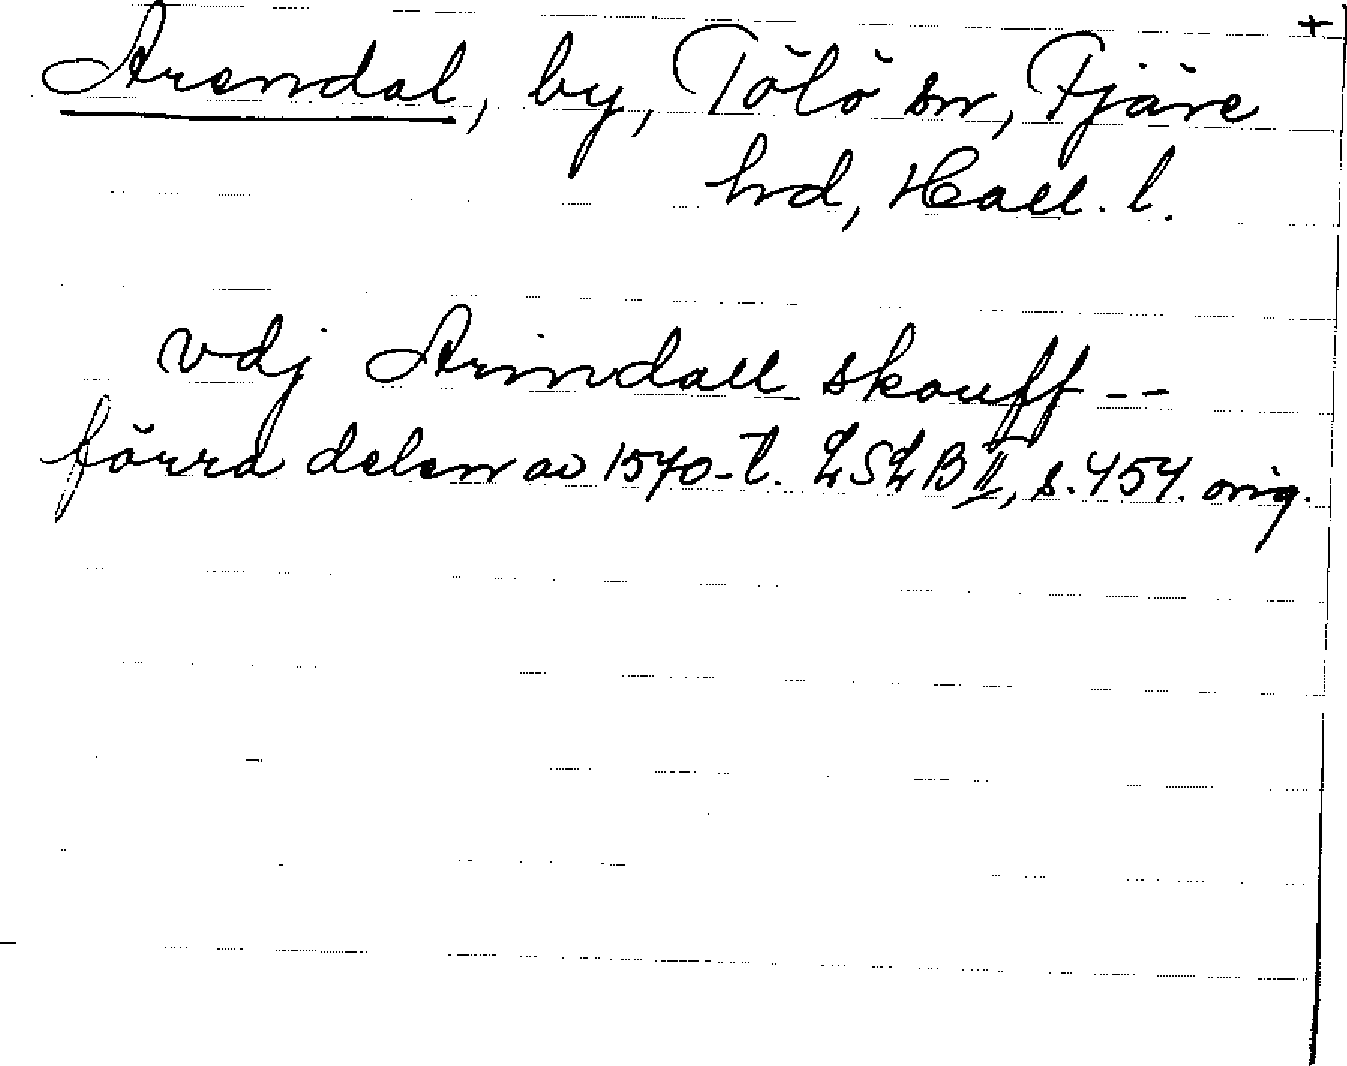 +
Arendal, by, Tölö sn, Fjäre
hd, Hall. l.
vdj Arindall skouff --
förra delen av 1570-t. LSLB II, s. 454. orig.